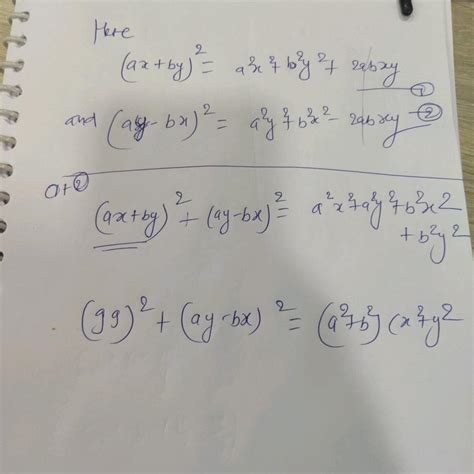 Here
(ax+by)² = a²x²+b²y²+ 2abxy ①
and (ay-bx)² = a²y²+b²x²- 2abxy ②
①+②
(ax+by)²+(ay-bx)² = a²x²+a²y²+b²x²
+b²y²
(99)²+(ay-bx)² = (a²+b²)(x²+y²